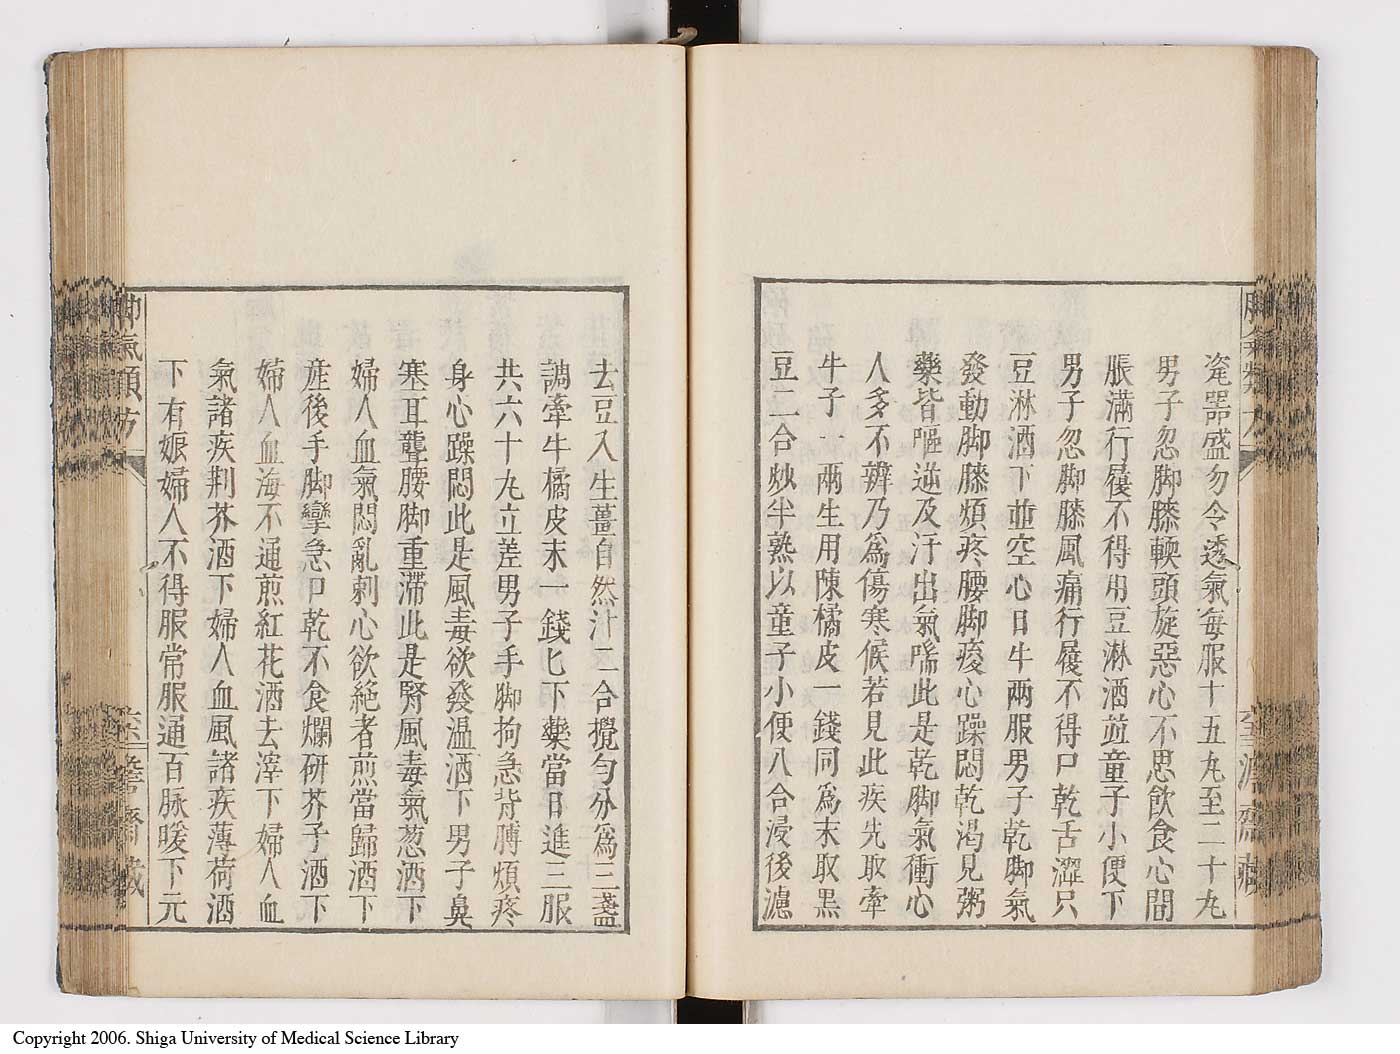 瓷器盛勿令透氣每服十五丸至二十丸
男子忽脚膝輭頭旋惡心不思飲食心間
脹滿行履不得用豆淋酒並童子小便下
男子忽脚膝風痛行履不得口乾舌澀只
豆淋酒下並空心日午兩服男子乾脚氣
發動脚膝煩疼腰脚痠心躁悶乾渴見粥
藥皆嘔逆及汗出氣喘此是乾脚氣衝心
人多不辨乃爲傷寒候若見此疾先取牽
牛子一兩生用陳橘皮一錢同爲末取黒
豆二合炒半熟以童子小便八合浸後濾
去豆入生薑自然汁二合攪勻分爲三盞
調牽牛橘皮末一錢匕下藥當日進三服
共六十丸立差男子手脚拘急背膊煩疼
身心躁悶此是風毒欲發溫酒下男子鼻
塞耳聾腰脚重滯此是腎風毒氣葱酒下
婦人血氣悶亂刺心欲絶者煎當歸酒下
産後手脚攣急口乾不食爛研芥子酒下
婦人血海不通煎紅花酒去滓下婦人血
氣諸疾荆芥酒下婦人血風諸疾薄荷酒
下有娠婦人不得服常服通百脉暖下元
脚氣類方
Copyright 2006. Shiga University of Medical Science Library